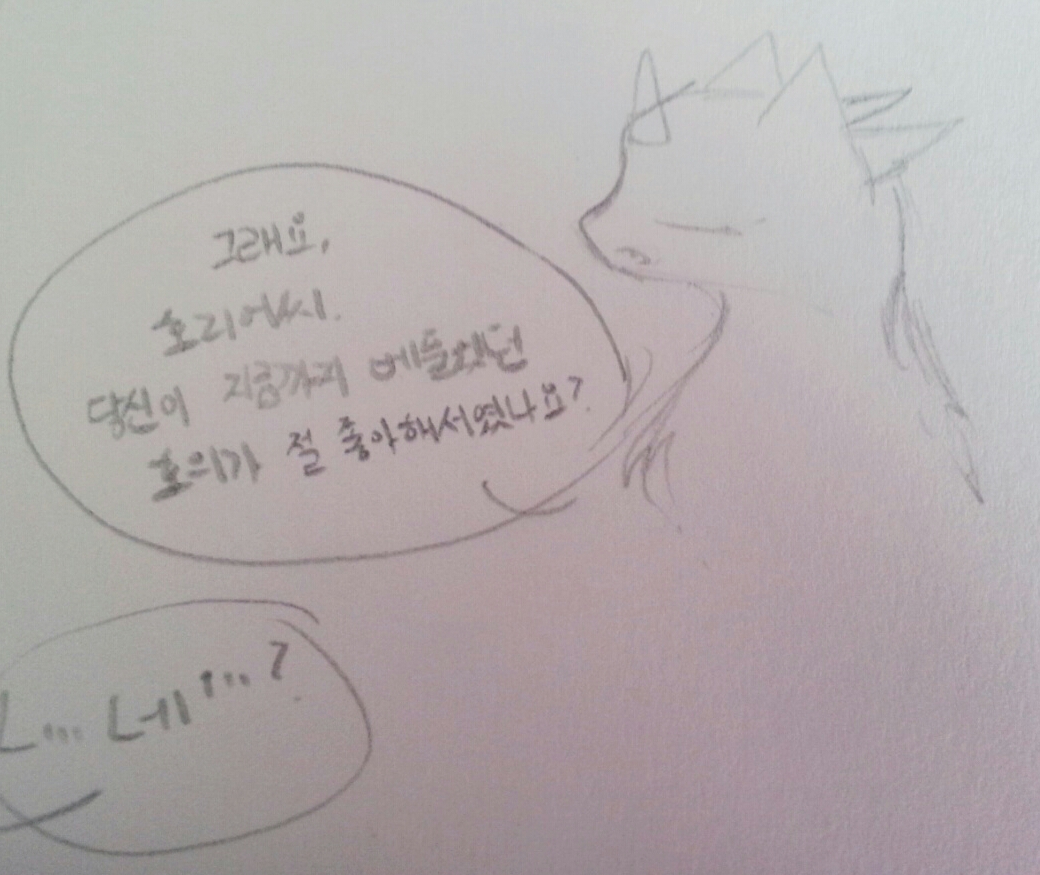 그래요,
호리어씨.
당신이 지금까지 베풀었던
호의가 절 좋아해서였나요?
ㄴ... 네...?